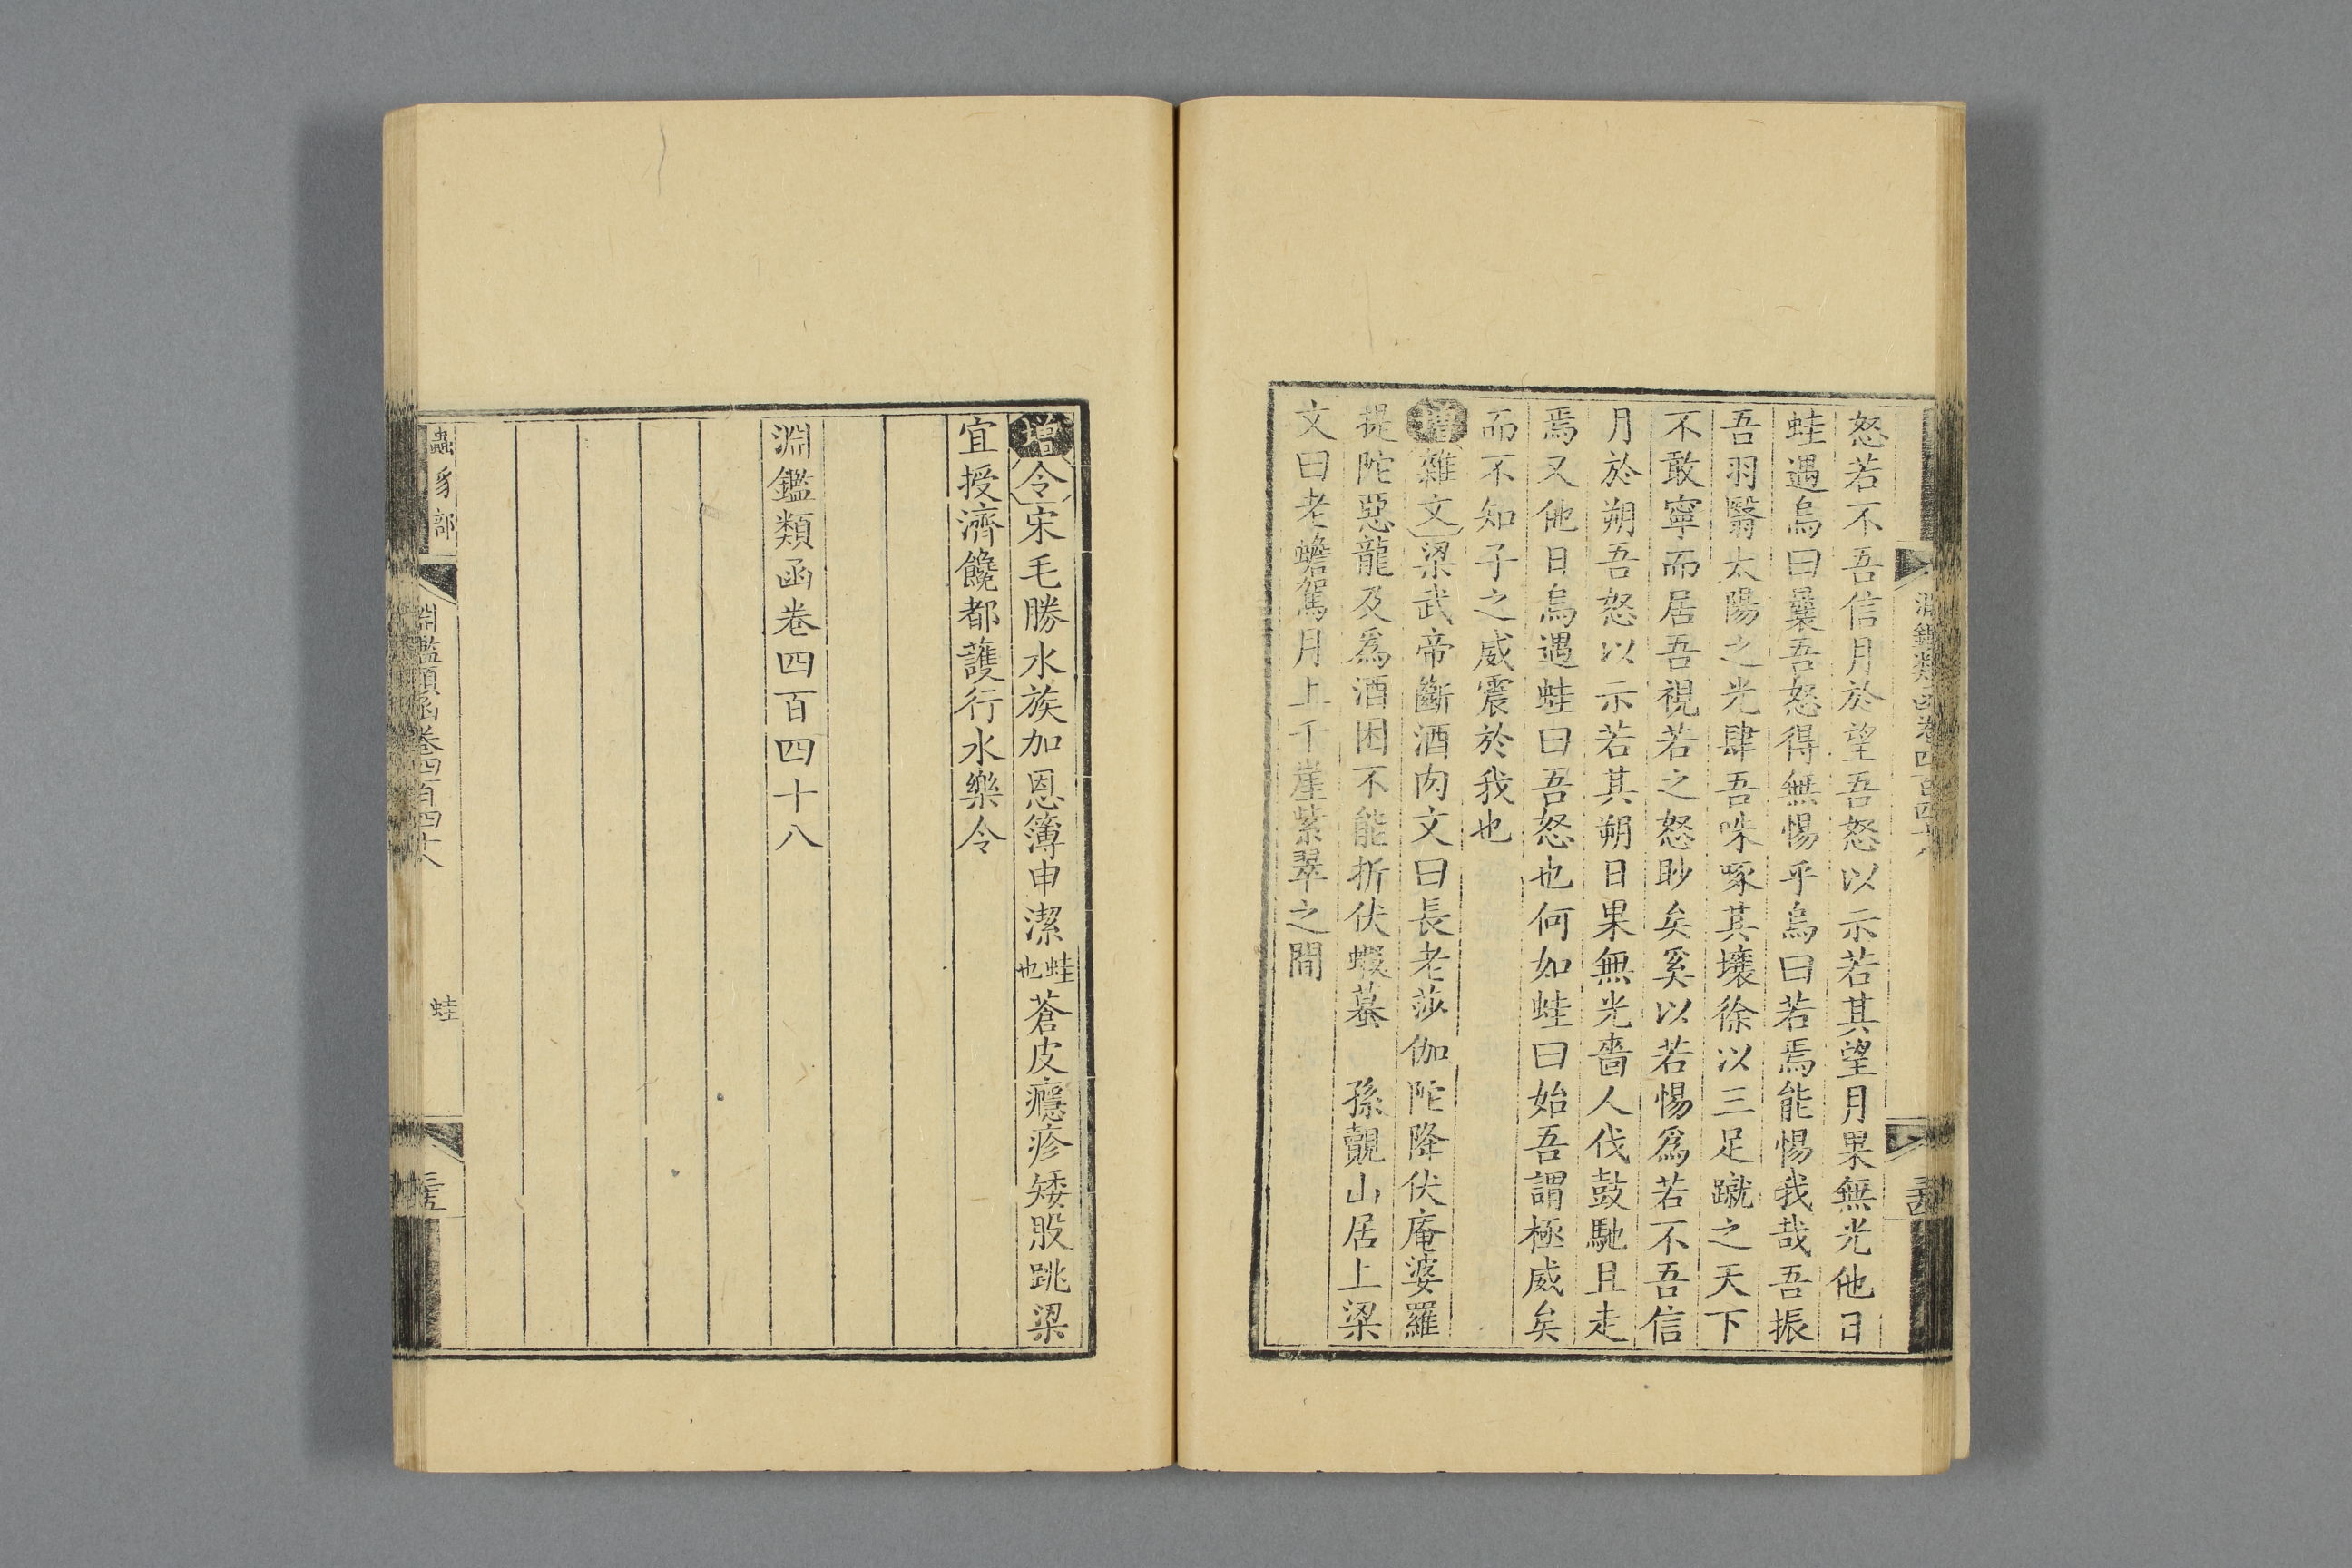 怒若不吾信月於望吾怒以示若其望月果無光他日
蛙遇烏曰曩吾怒得無惕乎烏曰若焉能惕我哉吾振
吾羽翳太陽之光肆吾咮啄其壤徐以三足蹴之天下
不敢寧而居吾視若之怒眇矣奚以若惕爲若不吾信
月於朔吾怒以示若其朔日果無光嗇人伐鼓馳且走
焉又他日烏遇蛙曰吾怒也何如蛙曰始吾謂極威矣
而不知子之威震於我也
增雜文梁武帝斷酒肉文曰長老莎伽陀降伏庵婆羅
提陀惡龍及爲酒困不能折伏蝦蟇 孫覿山居上梁
文曰老蟾駕月上千崖紫翠之間
淵鑑類函卷四百四十八
增令宋毛勝水族加恩簿申潔蛙也蒼皮癮疹矮股跳梁
宜授濟饞都護行水樂令
淵鑑類函卷四百四十八
蟲豸部
淵鑑類函卷四百四十八
蛙